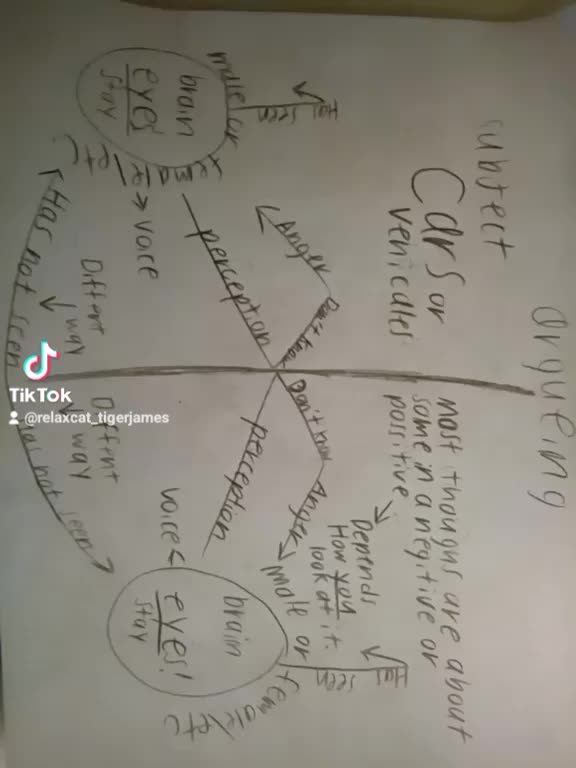 argueing
subject
Cars or
vehicales
most thoughs are about
some in a negitive or
possitive
Depends
How you
look at it.
Has seen
male or
fema
brain
eyes
stay
voice
perception
Anger
Don't know
Different
way
Has not seen
Don't know
Anger
perception
male or
female/etc
Has seen
brain
eyes!
stay
voice
Diffent
way
has not seen
TikTok
@relaxcat_tigerjames